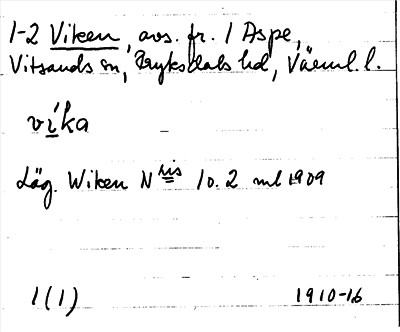 1-2 Viken, avs. fr. 1 Aspe,
Vitsands sn, Fryksdals hd, Värml. l.
vika
Läg. Wiken N:ris 1 o. 2 ml 1909
1(1) 1910-16